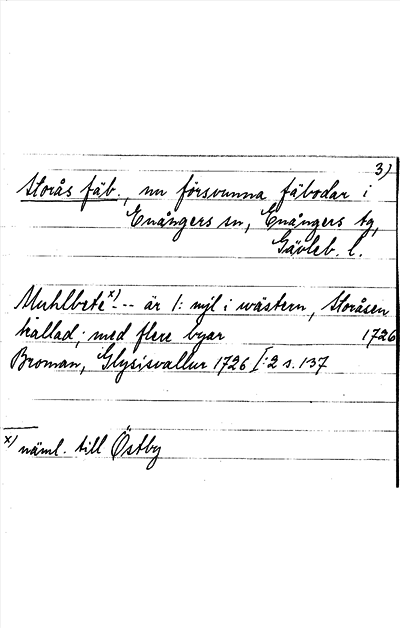 3)
Storås fäb., nu försvunna fäbodar i
Enångers sn, Enångers tg,
Gävleb. l.
Muhlbete x) -- är 1: mijl i wästern, Storåsen
kallad; med flere byar 1726
Broman, Glysisvallur 1726 I:2 s. 137
x) näml. till Östby